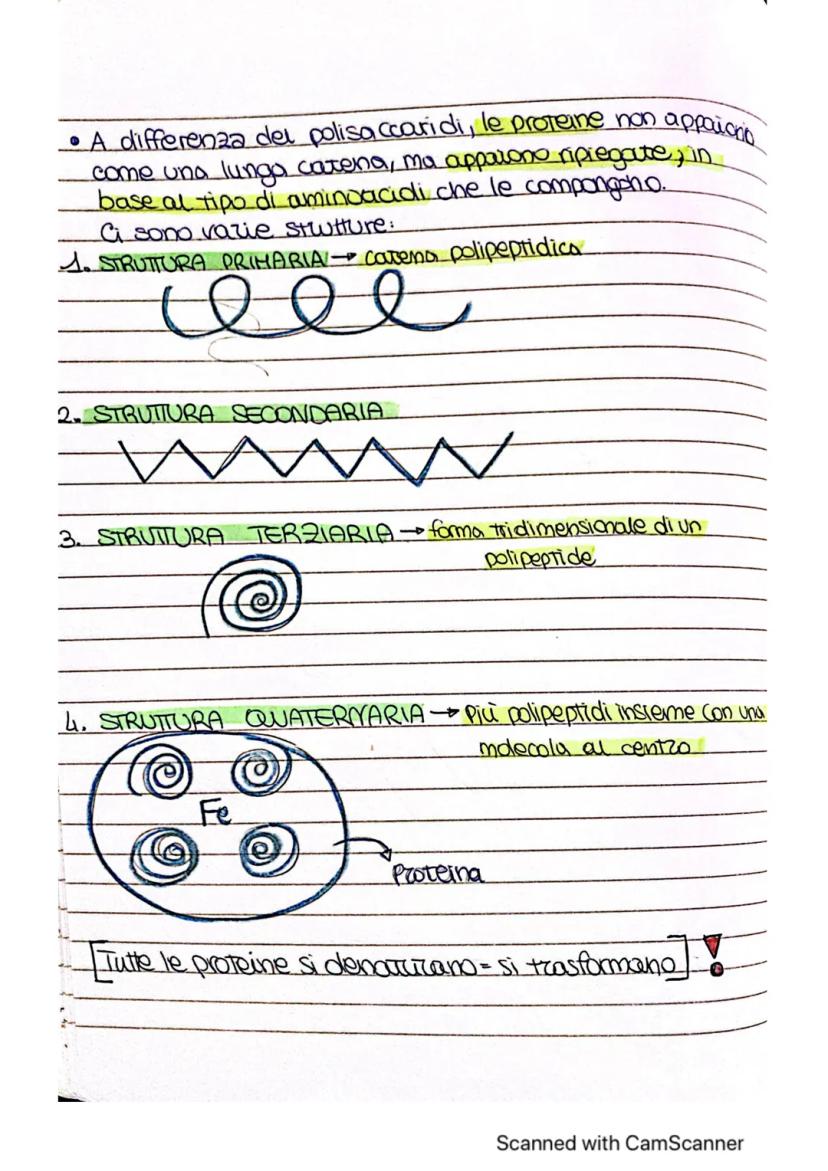 • A differenza dei polisaccaridi, le proteine non appaiono
come una lunga catena, ma appaiono ripiegate, in
base al tipo di aminoacidi che le compongono.
Ci sono varie strutture:
1. STRUTTURA PRIMARIA → catena polipeptidica
2. STRUTTURA SECONDARIA
3. STRUTTURA TERZIARIA → forma tridimensionale di un
polipeptide
4. STRUTTURA QUATERNARIA → più polipeptidi insieme con una
molecola al centro
Fe
Proteina
[Tutte le proteine si denaturano = si trasformano] !
Scanned with CamScanner